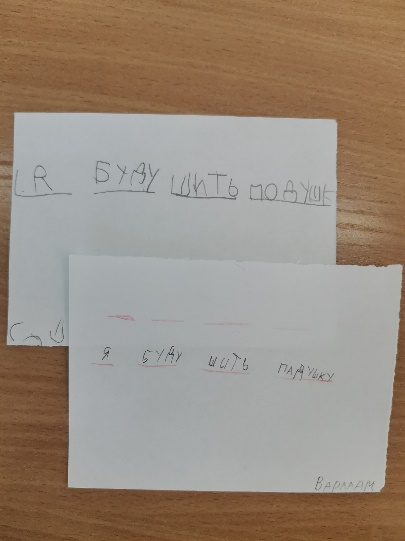 Я БУДУ ШИТЬ ПОДУШК
Я БУДУ ШИТЬ ПАДУШКУ
ВАРЛААМ